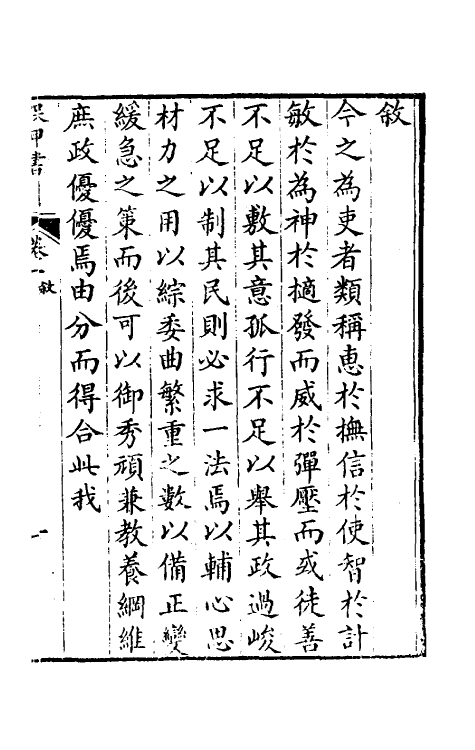 敘
今之為吏者類稱惠於撫信於使智於計
敏於為神於擿發而威於彈壓而或徒善
不足以敷其意孤行不足以舉其政過峻
不足以制其民則必求一法焉以輔心思
材力之用以綜委曲繁重之數以備正變
緩急之策而後可以御秀頑兼教養綱維
庶政優優焉由分而得合此我
甲書
卷一
敘
一